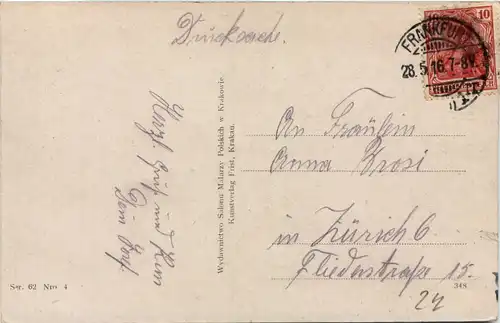 Drucksache.
10
FRANKFURT
28.5.16.7-8V.
Herzl. Gruß und Kuss
Dein
Wydawnictwo Salonu Malarzy Polskich w Krakowie.
Kunstverlag Frist, Krakau.
An Fräulein
Anna Brosi
in Zürich 6
Fliederstraße 15.
24
Ser. 62 Nro 4
348